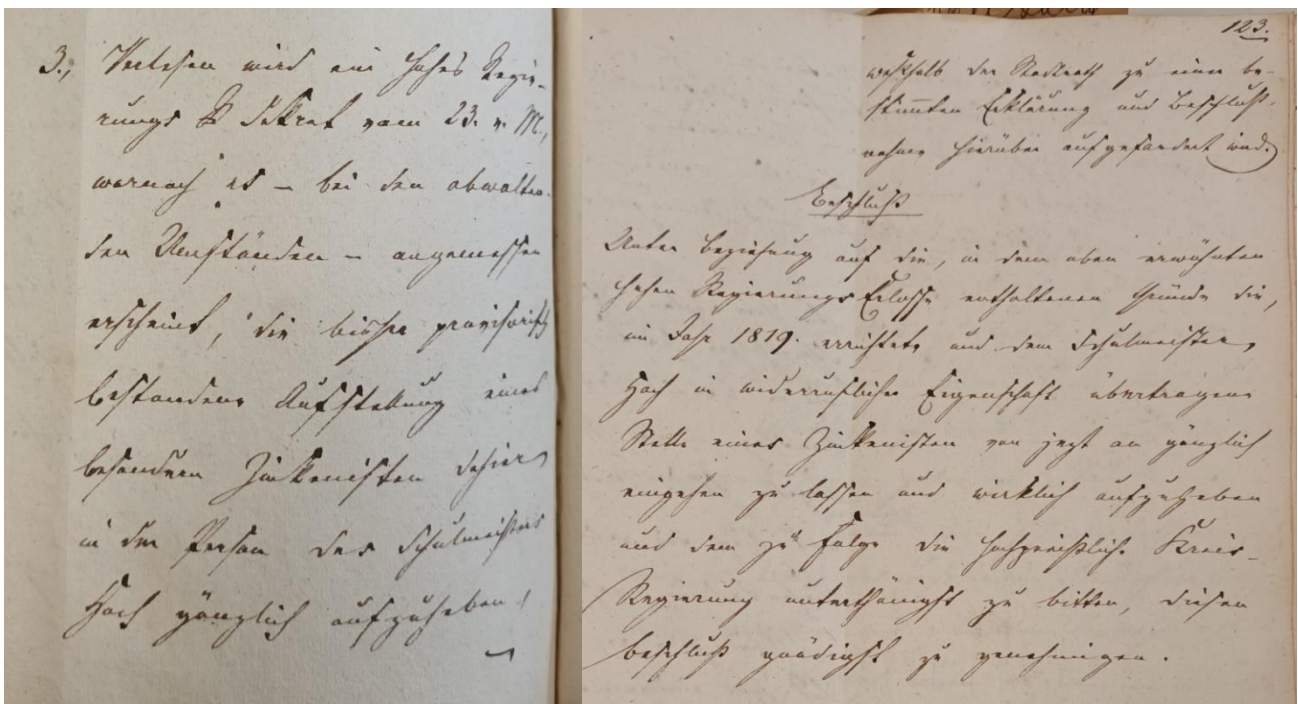 3., Verlesen wird ein hohes Regie-
rungs Dekret vom 23. v. M.,
wornach es – bei den obwalten-
den Umständen – angemessen
erscheint, die bisher provisorisch
bestandene Aufstellung eines
besondern Zinkenisten dahier,
in der Person des Schulmeisters
Hoch gänzlich aufzuheben,
123.
weßhalb der Stadtrath zu einer be-
stimmten Erklärung und Beschluß-
nahme hierüber aufgefordert wird.
Beschluß
Unter Beziehung auf die, in dem oben erwähnten
hohen Regierungs Erlasse enthaltenen Gründe die,
im Jahr 1819. errichtete und dem Schulmeister,
Hoch in widerruflicher Eigenschaft übertragene
Stelle eines Zinkenisten von jezt an gänzlich
eingehen zu lassen und wirklich aufzuheben
und dem zu Folge die hochpreißliche Kreis-
Regierung unterthänigst zu bitten, diesen
Beschluß gnädigst zu genehmigen.